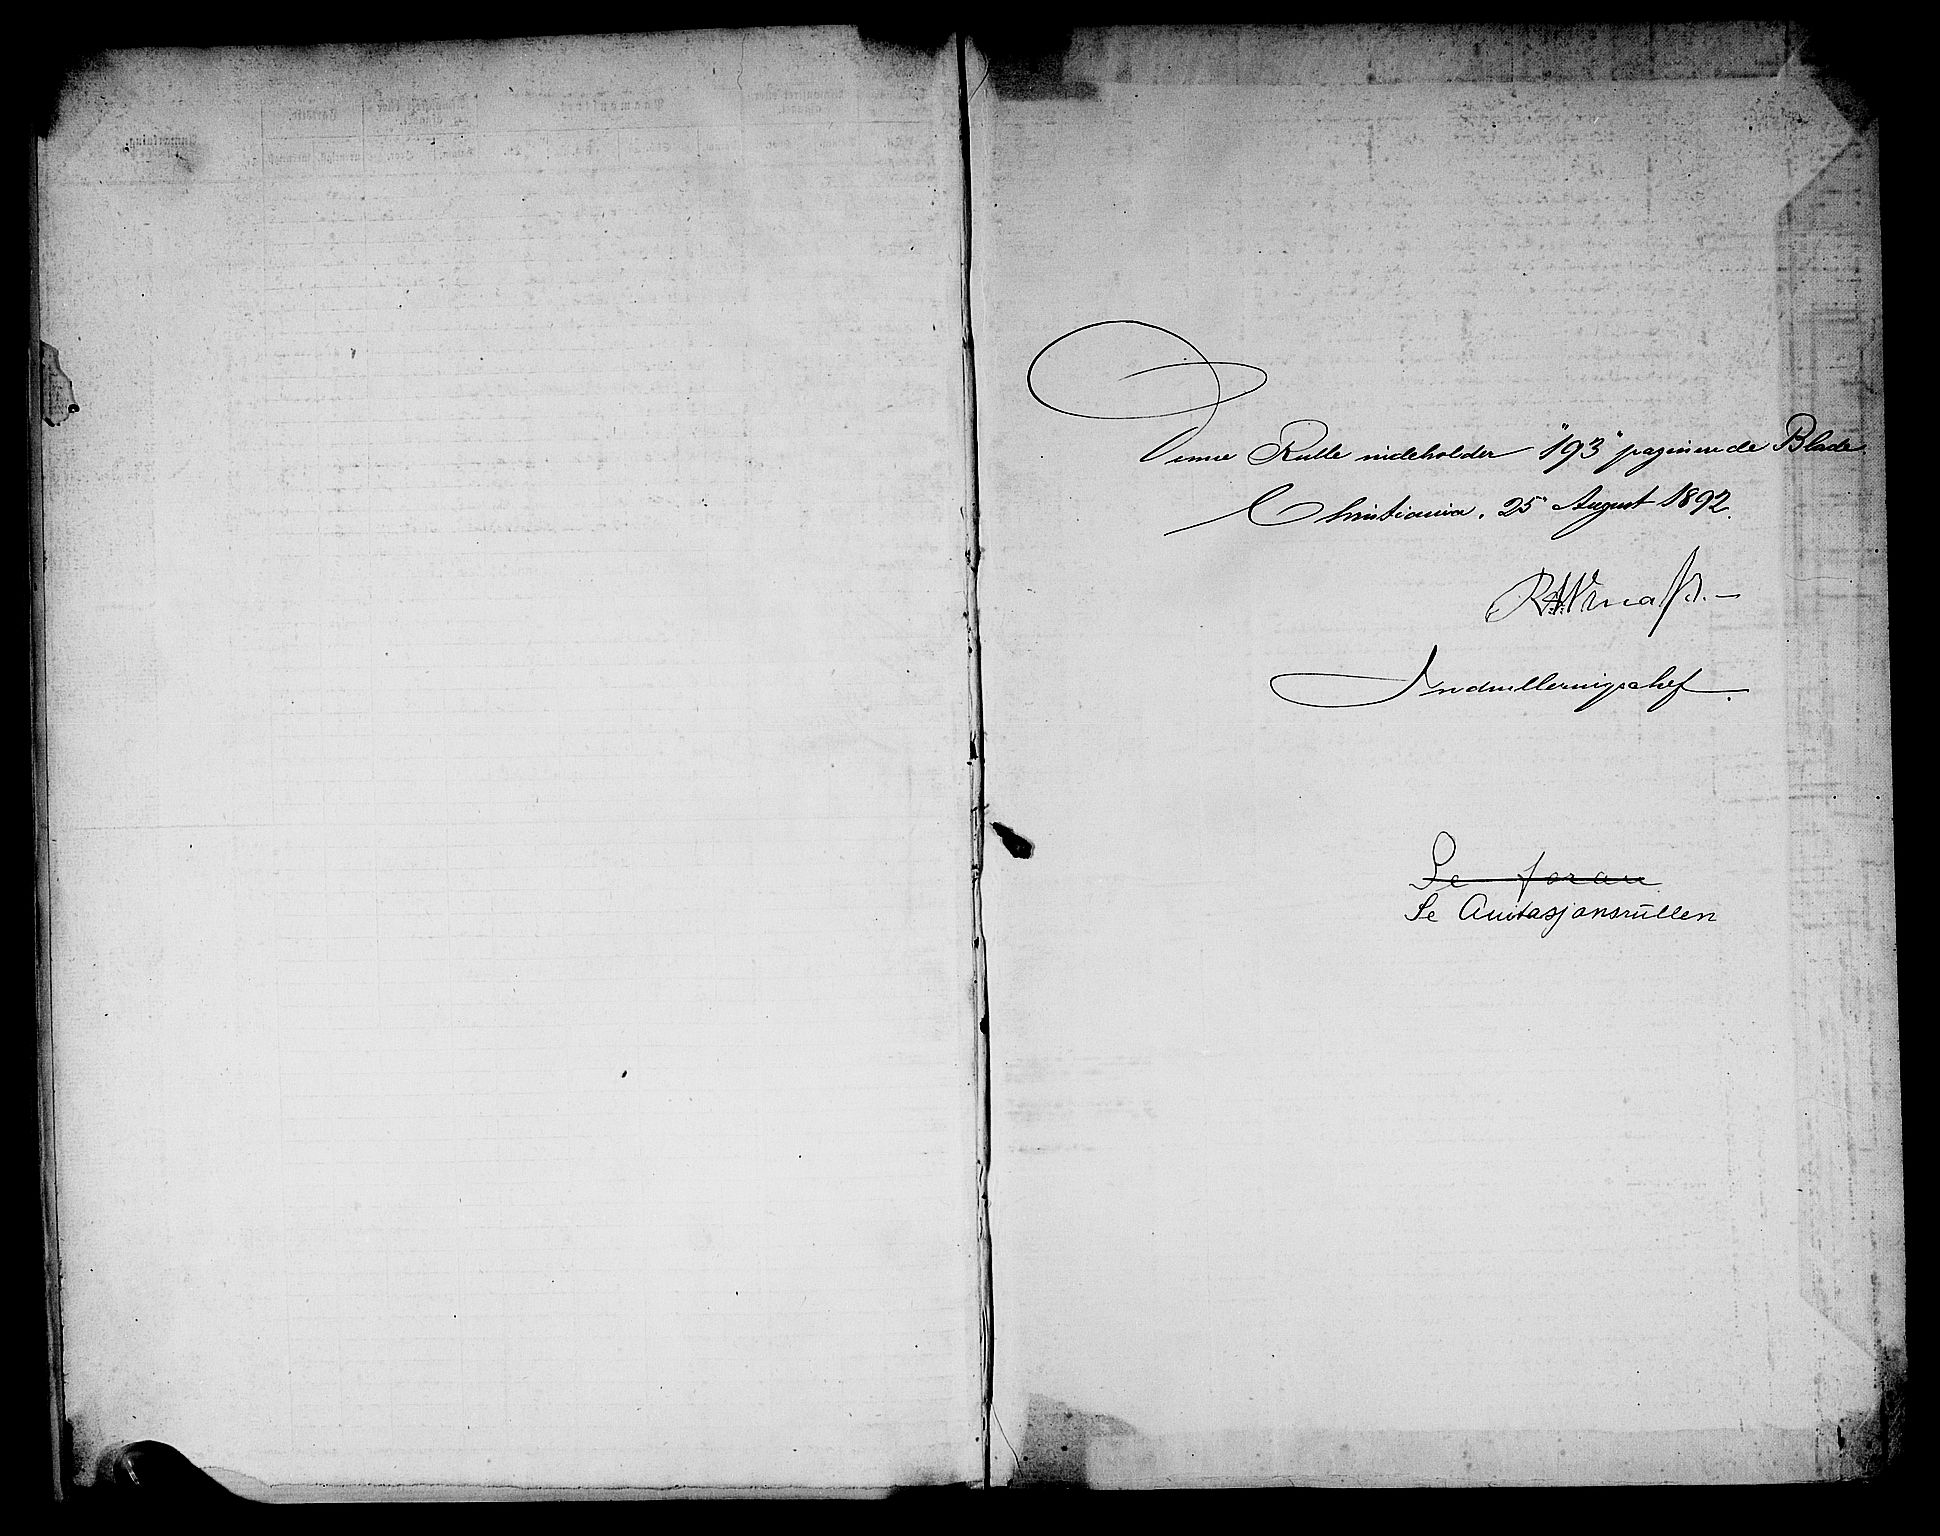 Denne Rulle indeholder "193" paginerede Blade
Christiania, 25 August 1892.
Indrulleringschef.
Se foran
Se Anitasjonsrullen